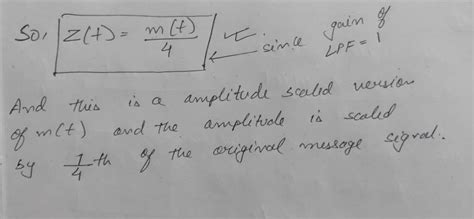 So, Z(t) = m(t)/4 since gain of LPF = 1
And this is a amplitude scaled version
of m(t) and the amplitude is scaled
by 1/4 th of the original message signal.